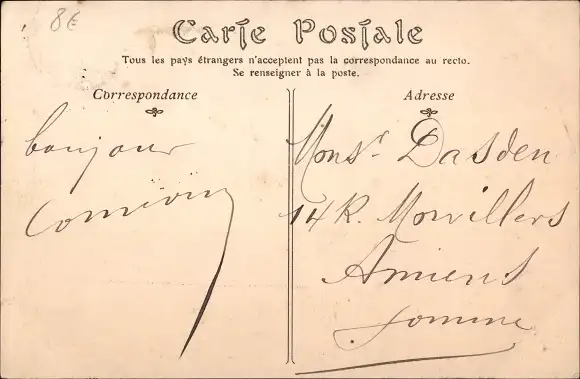 8€
Carte Postale
Tous les pays étrangers n'acceptent pas la correspondance au recto.
Se renseigner à la poste.
Correspondance
Adresse
bonjour
Monsr Dasden
14 R. Morvillers
Amiens
Somme